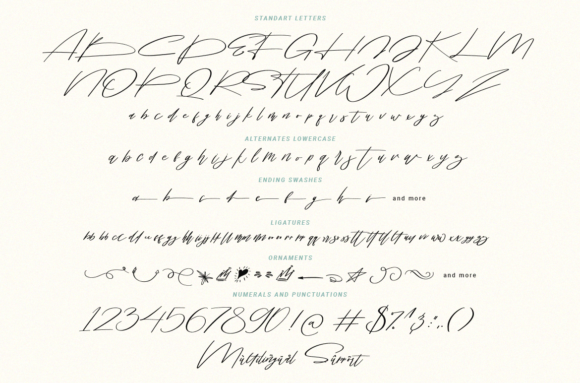 STANDART LETTERS
A B C D E F G H I J K L M
N O P Q R S T U V W X Y Z
a b c d e f g h i j k l m n o p q r s t u v w x y z
ALTERNATES LOWERCASE
a b c d e f g h i j k l m n o p q r s t u v w x y z
ENDING SWASHES
a b c d e f g h i and more
LIGATURES
ORNAMENTS
and more
NUMERALS AND PUNCTUATIONS
1234567890!@#$%^&:;,.()
Multilingual Support